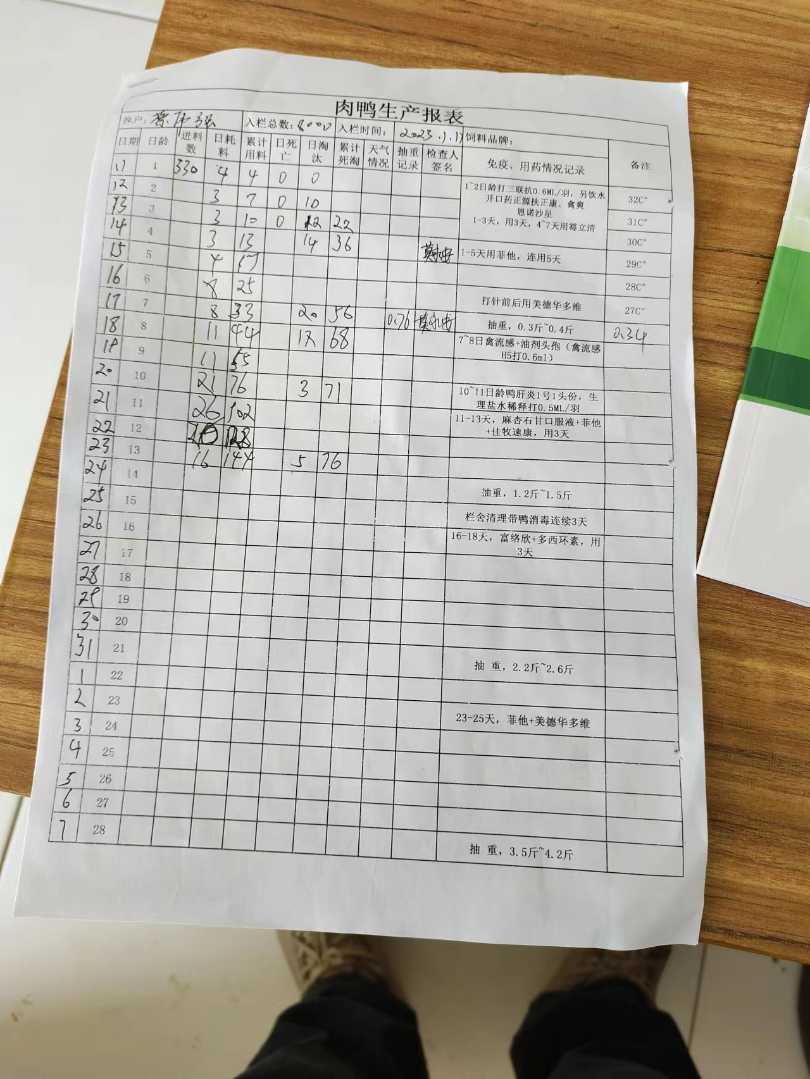 肉鸭生产报表
入栏总数: 8000 入栏时间: 2023.1.11 饲料品牌:
日期 日龄 进料数 日耗料 累计用料 日死亡 日淘汰 累计死淘 天气情况 抽重记录 检查人签名 免疫、用药情况记录 备注
11 1 330 4 4 0 0
12 2 3 7 0 10 1~2日龄打三联抗0.6ML/羽，另饮水开口药正源扶正康、禽爽 32C°
恩诺沙星
13 3 3 10 0 12 22 1-3天，用3天，4~7天用霉立清 31C°
14 4 3 13 14 36 30C°
15 5 4 17 1-5天用菲他，连用5天 29C°
16 6 8 25 28C°
17 7 8 33 20 56 0.76 打针前后用美德华多维 27C°
18 8 11 44 12 68 抽重，0.3斤~0.4斤 0.34
19 9 11 55 7~8日禽流感+油剂头孢（禽流感H5打0.6ml）
20 10 21 76 3 71
21 11 26 102 10~11日龄鸭肝炎1号1头份，生理盐水稀释打0.5ML/羽
22 12 128 11-13天，麻杏石甘口服液+菲他+佳牧速康，用3天
23 13 16 144 5 76
24 14
25 15 抽重，1.2斤~1.5斤
26 16 栏舍清理带鸭消毒连续3天
27 17 16-18天，富络欣+多西环素，用3天
28 18
29 19
30 20
31 21
1 22 抽 重，2.2斤~2.6斤
2 23
3 24 23-25天，菲他+美德华多维
4 25
5 26
6 27
7 28
抽 重，3.5斤~4.2斤